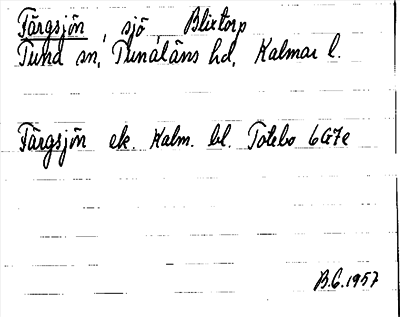 Färgsjön, sjö, Blixtorp
Tuna sn, Tunaläns hd, Kalmar l.
Färgsjön ek. Kalm. bl. Totebo 6G7e
B.G. 1957